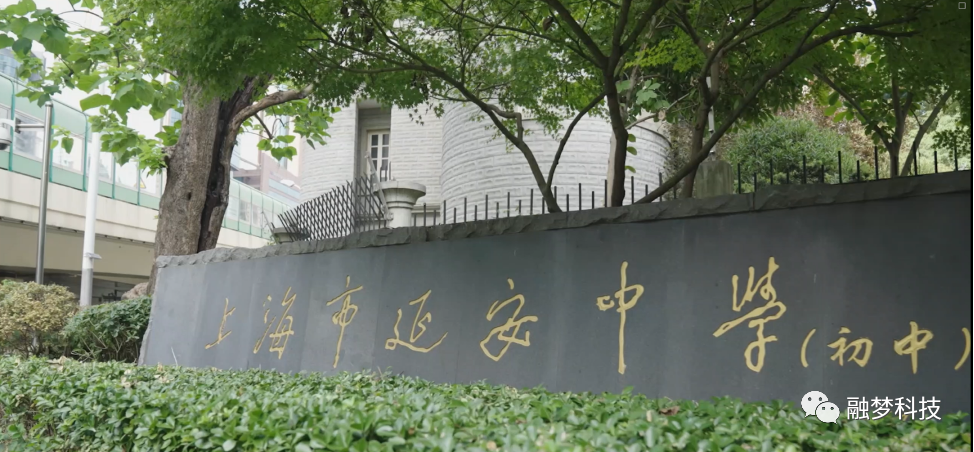 上海市延安中學(初中)
融梦科技